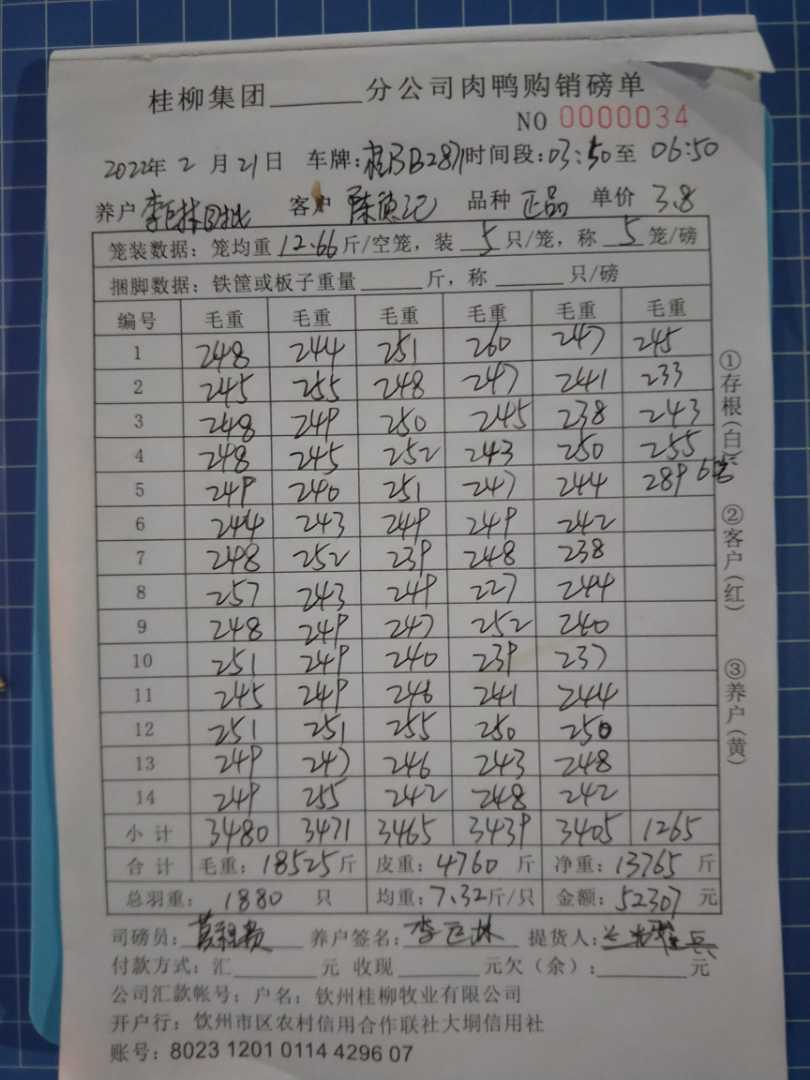 桂柳集团______分公司肉鸭购销磅单
NO 0000034
2022年 2 月 21日 车牌:桂BB2871 时间段:03:50至 06:50
养户 李巨林 客户 陈德记 品种 正品 单价 3.8
笼装数据:笼均重 12.66 斤/空笼,装 5 只/笼,称 5 笼/磅
捆脚数据:铁筐或板子重量______斤,称______只/磅
编号 毛重 毛重 毛重 毛重 毛重 毛重
1 248 244 251 260 247 245
2 245 255 248 247 241 233
3 248 249 250 245 238 243
4 248 245 252 243 250 255
5 249 240 251 247 244 289 6笼
6 244 243 249 249 242
7 248 252 239 248 238
8 257 243 249 227 244
9 248 249 247 252 240
10 251 249 240 239 237
11 245 249 246 241 244
12 251 251 255 250 250
13 249 247 246 243 248
14 249 255 242 248 242
小计 3480 3471 3465 3439 3405 1265
合计 毛重:18525斤 皮重:4760 斤 净重:13765 斤
总羽重: 1880 只 均重:7.32斤/只 金额:52307 元
司磅员: 养户签名:李巨林 提货人:
付款方式:汇______元 收现______元欠(余):______元
公司汇款帐号:户名:钦州桂柳牧业有限公司
开户行:钦州市区农村信用合作联社大垌信用社
账号:8023 1201 0114 4296 07
①存根(白)
②客户(红)
③养户(黄)